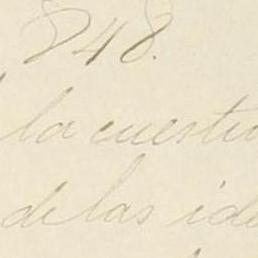 848.
la cuestió
de las ide